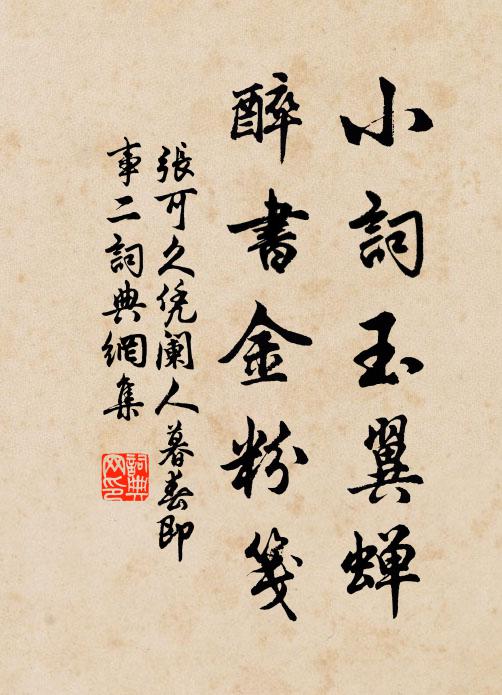 小詞玉翼蝉
醉書金粉笺
張可久凭阑人暮春即
事二詞典網集
詞典网印